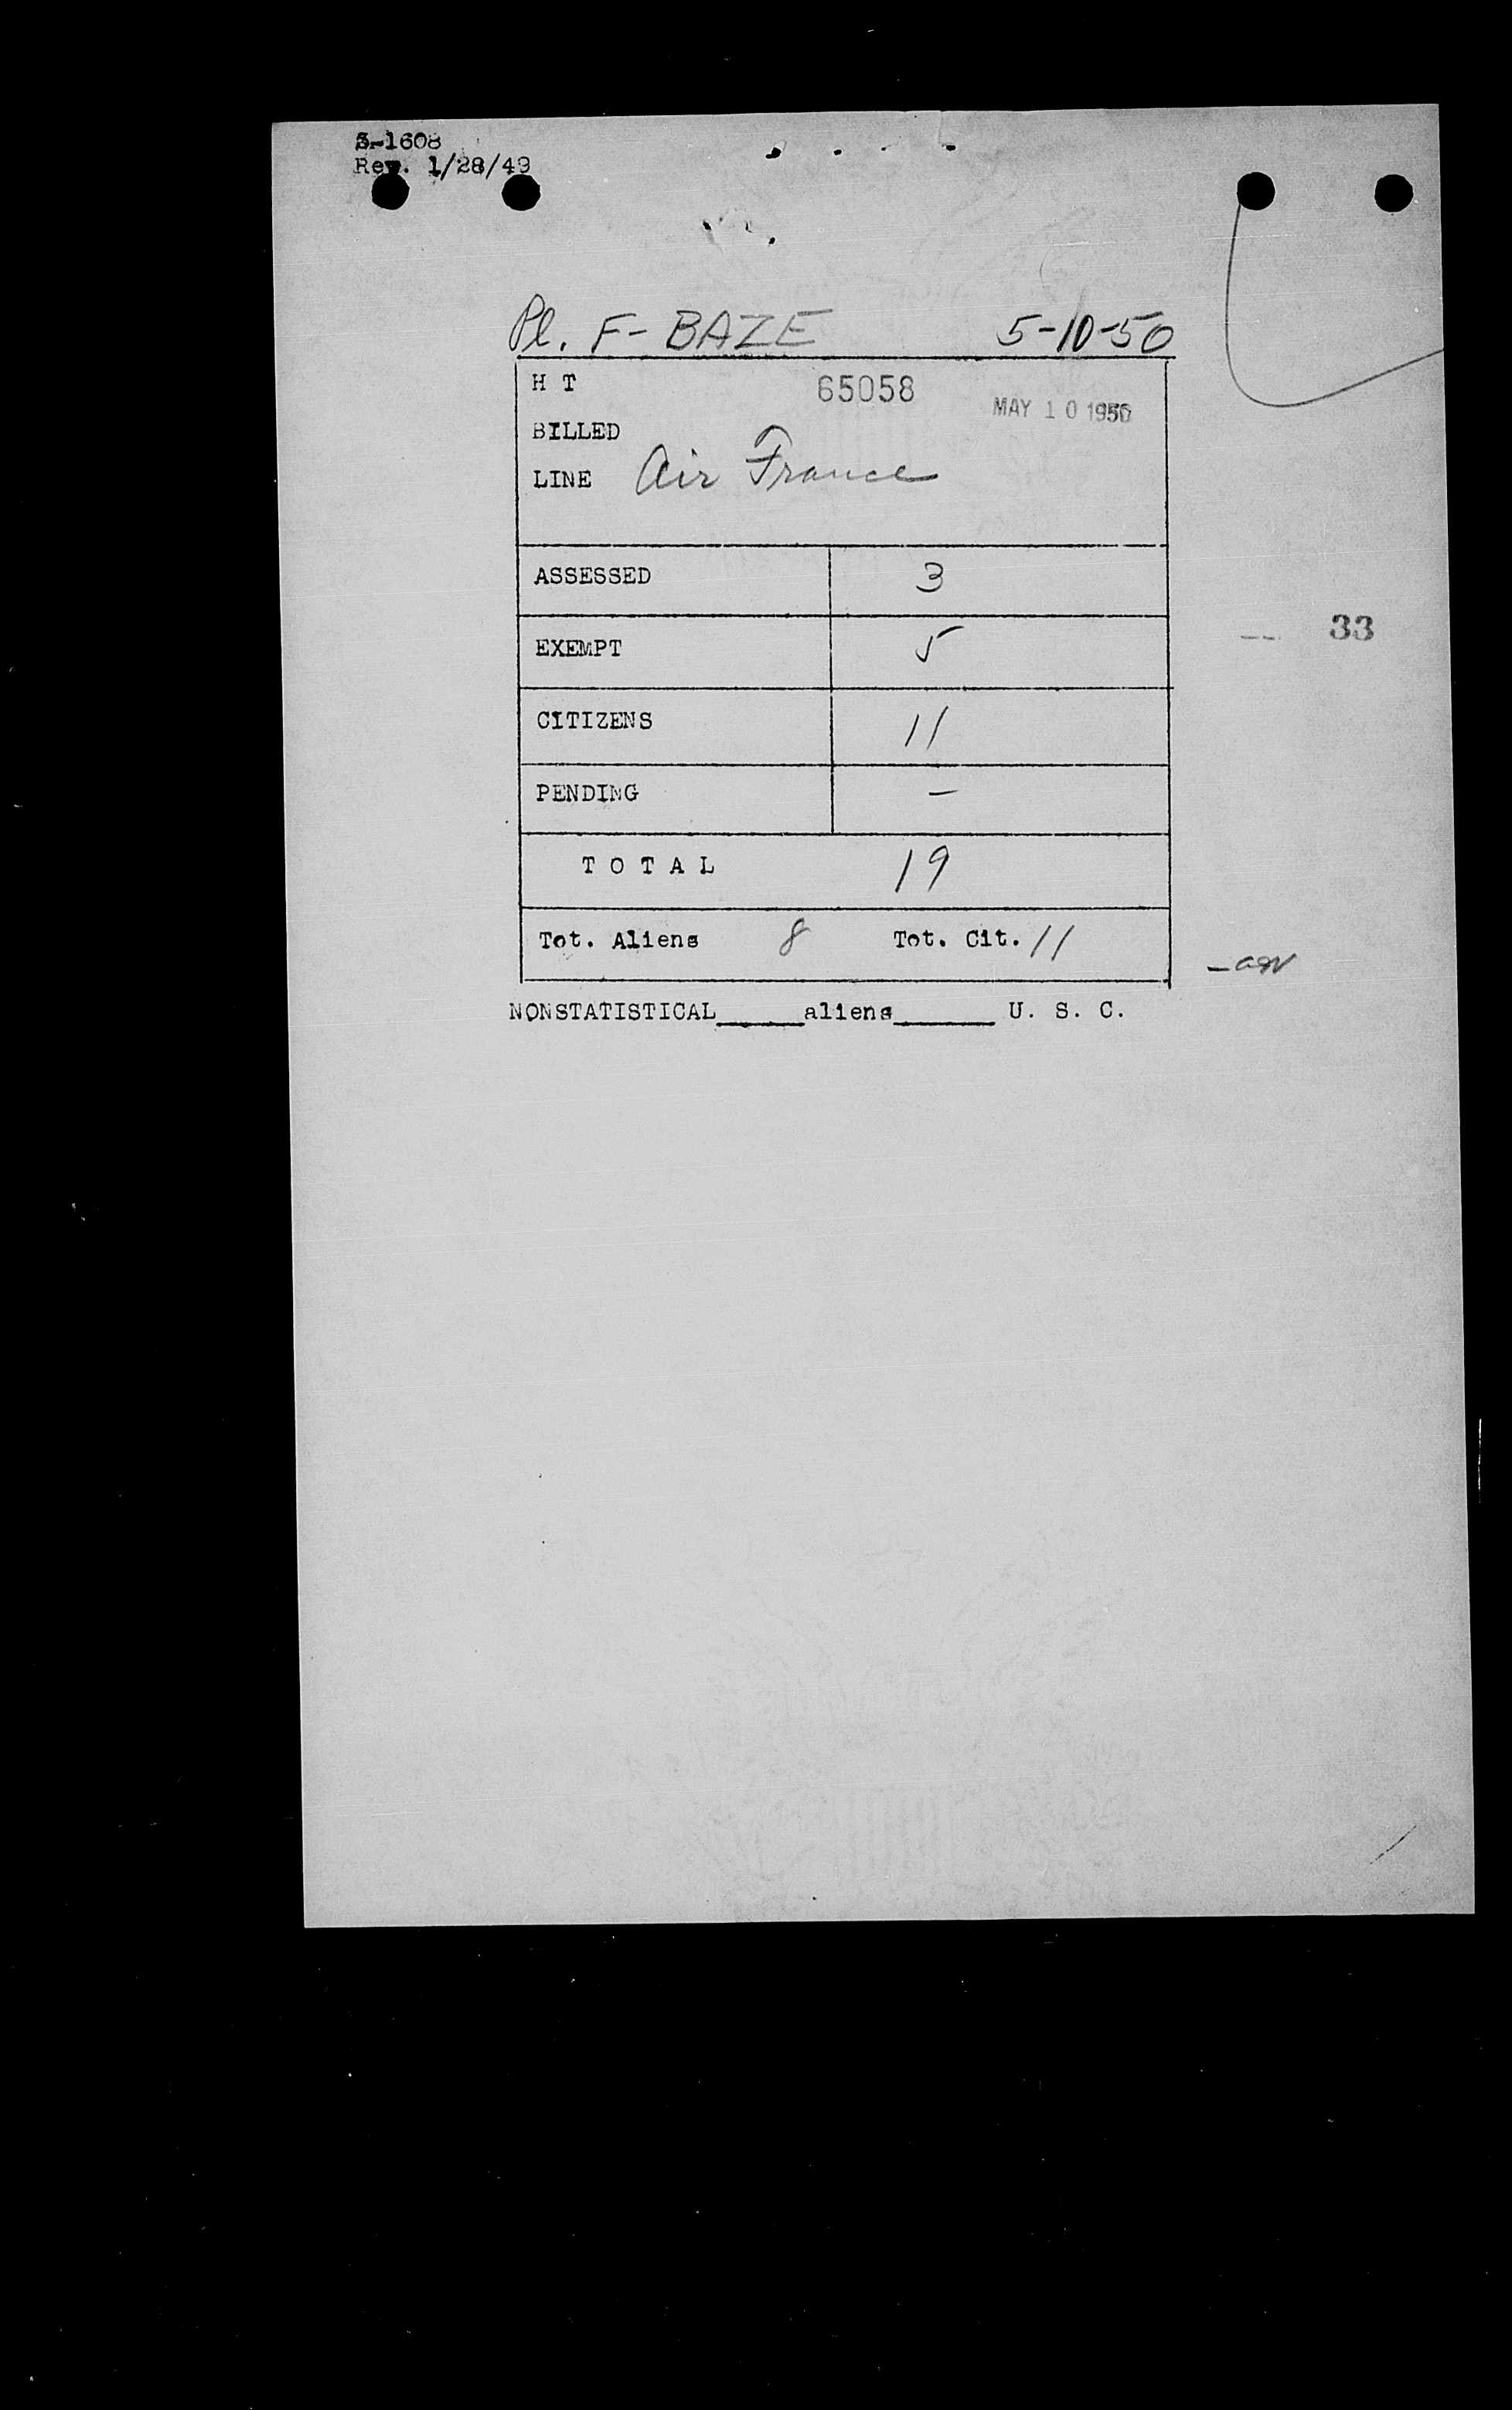 3-1608
Rev. 1/28/49
Pl. F-BAZE 5-10-50
H T 65058
MAY 10 1950
BILLED
LINE Air France
ASSESSED 3
33
EXEMPT 5
CITIZENS 11
PENDING —
TOTAL 19
Tot. Aliens 8 Tot. Cit. 11
NONSTATISTICAL_____aliens_____ U. S. C.